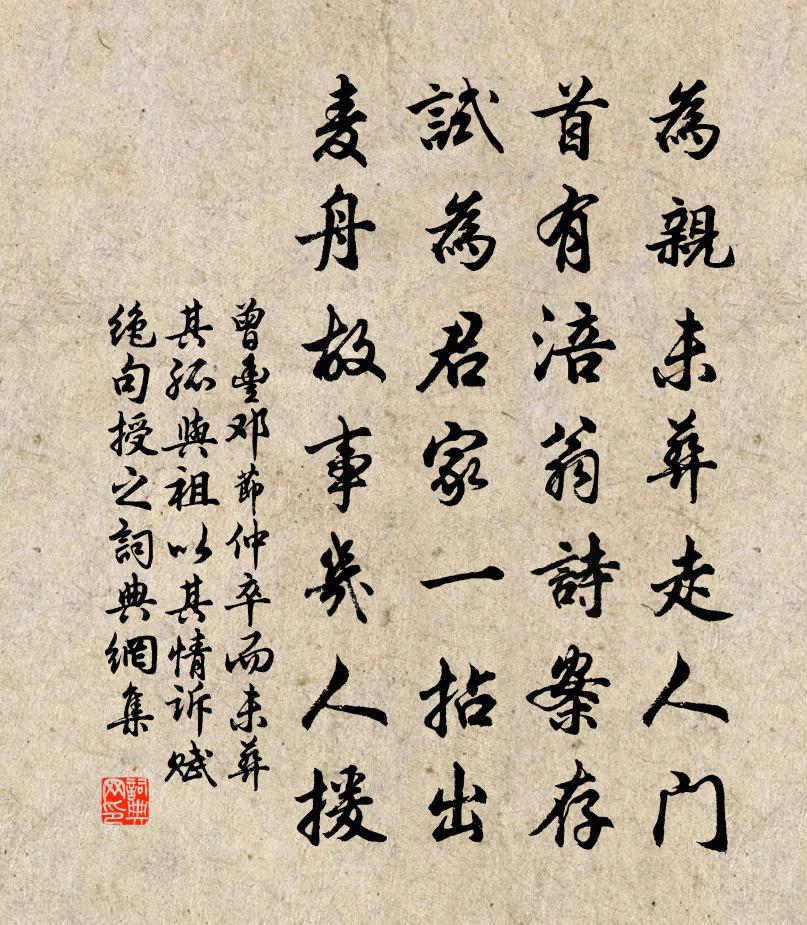 為親未葬走人門
首有涪翁詩案存
試為君家一拈出
麦舟故事幾人援
曾豊邓節仲卒而未葬
其孤與祖以其情訴賦
绝句授之詞典網集
詞典网印